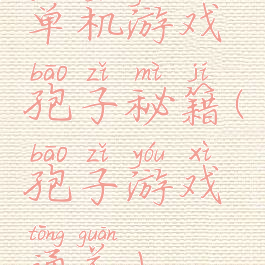 单机游戏
bāo zǐ mì jí
孢子秘籍(
bāo zǐ yóu xì
孢子游戏
tōng guān
通关)